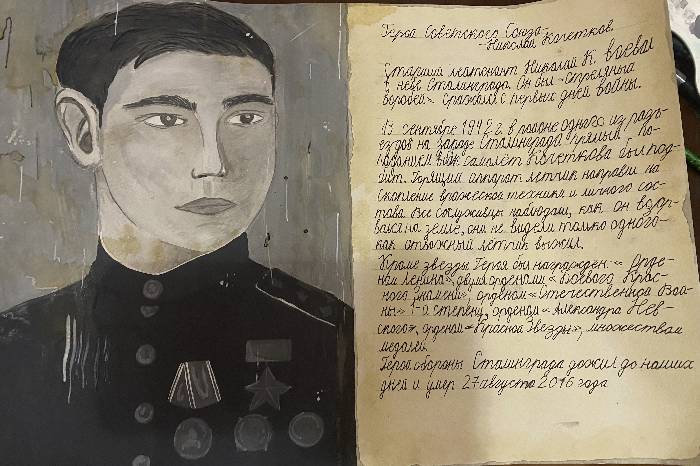 Герой Советского Союза
- Николай Кочетков.
Старший лейтенант Николай К. воевал
в небе Сталинграда. Он был «стреляный
воробей». Сражался с первых дней войны.
13 сентября 1942 г. в районе одного из разъ-
ездов на западе Сталинграда прямым по-
паданием самолёт Кочеткова был под-
бит. Горящий аппарат летчик направил на
скопление вражеской техники и личного сос-
тава. Все сослуживцы наблюдали, как он взор-
вался на земле, они не видели только одного-
как отважный летчик выжил.
Кроме звезды Героя был награжден: « Орде-
ном Ленина», двумя орденами « Боевого Крас-
ного Знамени», орденом « Отечественной Вой-
ны» 1-й степени, орденом « Александра Нев-
ского», орденом «Красной Звезды», множеством
медалей.
Герой обороны Сталинграда дожил до наших
дней и умер 27 августа 2016 года